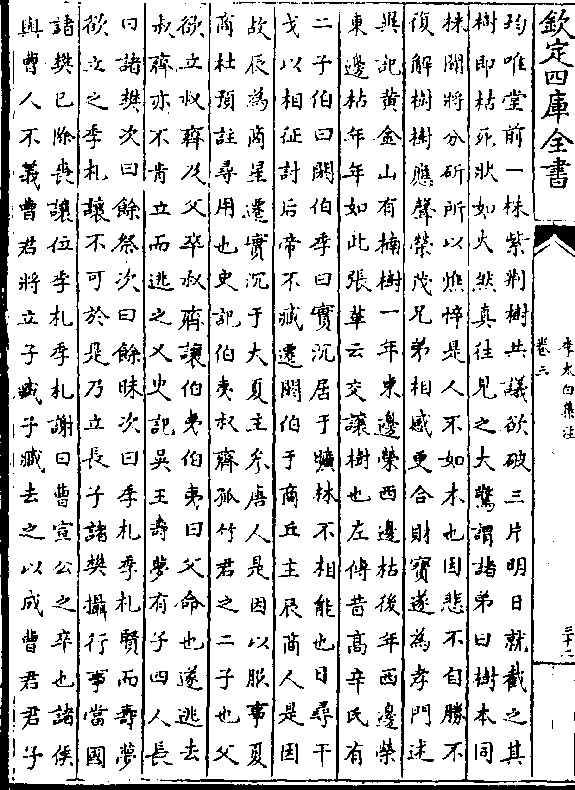 欽定四庫全書
李太白集注
卷三
三十二
均唯堂前一株紫荆樹共議欲破三片明日就截之其
樹即枯死狀如火然真往見之大驚謂諸弟曰樹本同
株聞將分斫所以憔悴是人不如木也因悲不自勝不
復解樹樹應聲榮茂兄弟相感更合財寶遂為孝門述
異記黄金山有楠樹一年東邊榮西邊枯後年西邊榮
東邊枯年年如此張華云交讓樹也左傳昔高辛氏有
二子伯曰閼伯季曰實沉居于曠林不相能也日尋干
戈以相征討后帝不臧遷閼伯于商丘主辰商人是因
故辰為商星遷實沉于大夏主參唐人是因以服事夏
商杜預註尋用也史記伯夷叔齊孤竹君之二子也父
欲立叔齊及父卒叔齊讓伯夷伯夷曰父命也遂逃去
叔齊亦不肯立而逃之又史記吳王壽夢有子四人長
曰諸樊次曰餘祭次曰餘昧次曰季札季札賢而壽夢
欲立之季札讓不可於是乃立長子諸樊攝行事當國
諸樊已除喪讓位季札季札謝曰曹宣公之卒也諸侯
與曹人不義曹君將立子臧子臧去之以成曹君君子